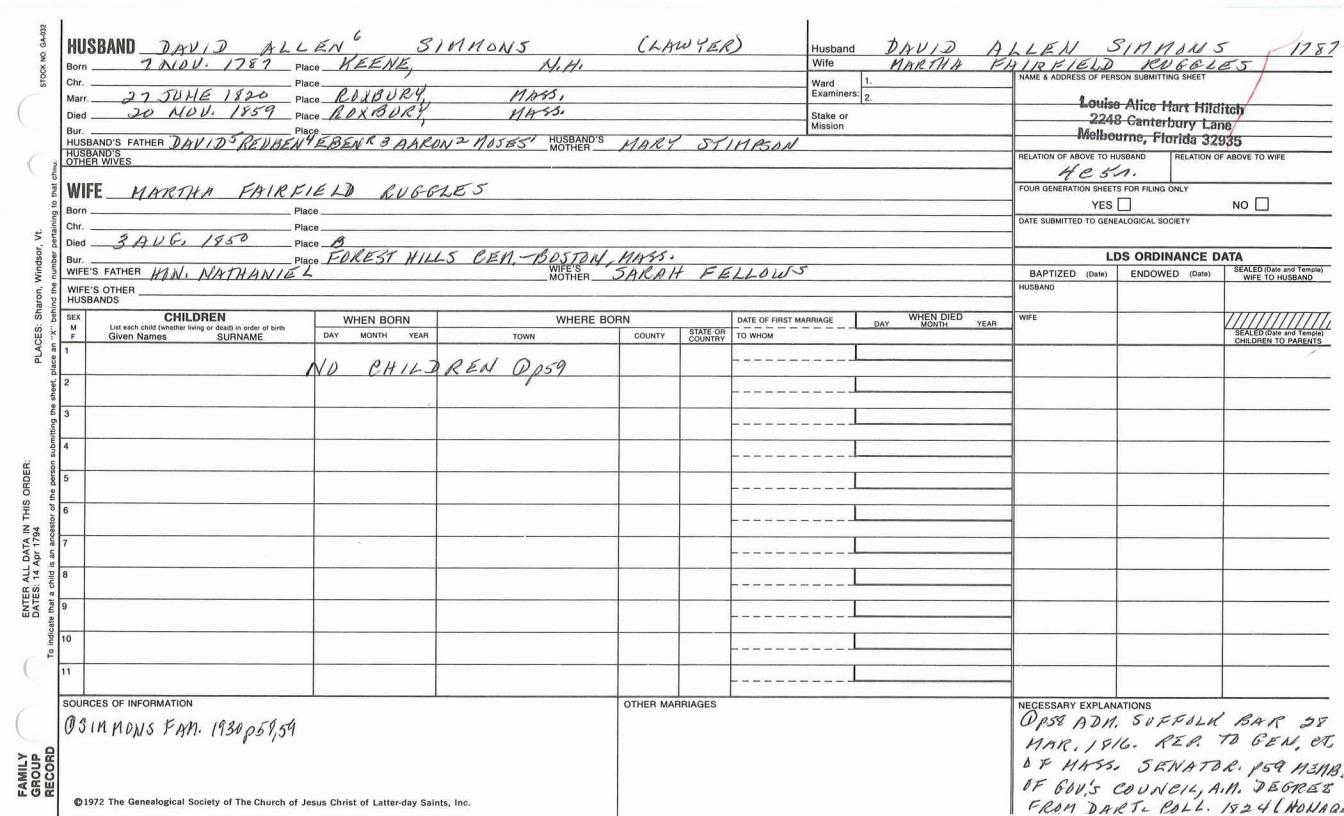 STOCK NO. GA-032
HUSBAND DAVID ALLEN⁶ SIMMONS (LAWYER)
Born 7 NOV. 1787 Place KEENE, N.H.
Chr. Place
Marr. 27 JUNE 1820 Place ROXBURY, MASS.
Died 20 NOV. 1859 Place ROXBURY, MASS.
Bur. Place
HUSBAND'S FATHER DAVID⁵ REUBEN⁴ EBENR 3 AARON² MOSES¹ HUSBAND'S MOTHER MARY STIMPSON
HUSBAND'S OTHER WIVES
Husband DAVID ALLEN SIMMONS 1787
Wife MARTHA FAIRFIELD RUGGLES
Ward Examiners: 1.
2.
Stake or Mission
NAME & ADDRESS OF PERSON SUBMITTING SHEET
Louise Alice Hart Hilditch
2248 Canterbury Lane
Melbourne, Florida 32935
RELATION OF ABOVE TO HUSBAND RELATION OF ABOVE TO WIFE
4c5r.
FOUR GENERATION SHEETS FOR FILING ONLY
YES NO
DATE SUBMITTED TO GENEALOGICAL SOCIETY
WIFE MARTHA FAIRFIELD RUGGLES
Born Place
Chr. Place
Died 3 AUG. 1850 Place B
Bur. Place FOREST HILLS CEM.-BOSTON, MASS.
WIFE'S FATHER HON. NATHANIEL WIFE'S MOTHER SARAH FELLOWS
WIFE'S OTHER HUSBANDS
LDS ORDINANCE DATA
BAPTIZED (Date) ENDOWED (Date) SEALED (Date and Temple) WIFE TO HUSBAND
HUSBAND
WIFE
SEALED (Date and Temple) CHILDREN TO PARENTS
SEX M F
CHILDREN
List each child (whether living or dead) in order of birth
Given Names SURNAME
WHEN BORN
DAY MONTH YEAR
WHERE BORN
TOWN COUNTY STATE OR COUNTRY
DATE OF FIRST MARRIAGE
TO WHOM
WHEN DIED
DAY MONTH YEAR
1
NO CHILDREN @p59
2
3
4
5
6
7
8
9
10
11
PLACES: Sharon, Windsor, Vt.
ENTER ALL DATA IN THIS ORDER:
DATES: 14 Apr 1794
To indicate that a child is an ancestor of the person submitting the sheet, place an "X" behind the number pertaining to that child.
FAMILY GROUP RECORD
SOURCES OF INFORMATION
@SIMMONS FAM. 1930 p58,59
©1972 The Genealogical Society of The Church of Jesus Christ of Latter-day Saints, Inc.
OTHER MARRIAGES
NECESSARY EXPLANATIONS
@p58 ADM. SUFFOLK BAR 28
MAR. 1816. REP. TO GEN. CT.
OF MASS. SENATOR. p59 MEMB.
OF GOV'S COUNCIL, A.M. DEGREE
FROM DART. COLL. 1824 (HONAR